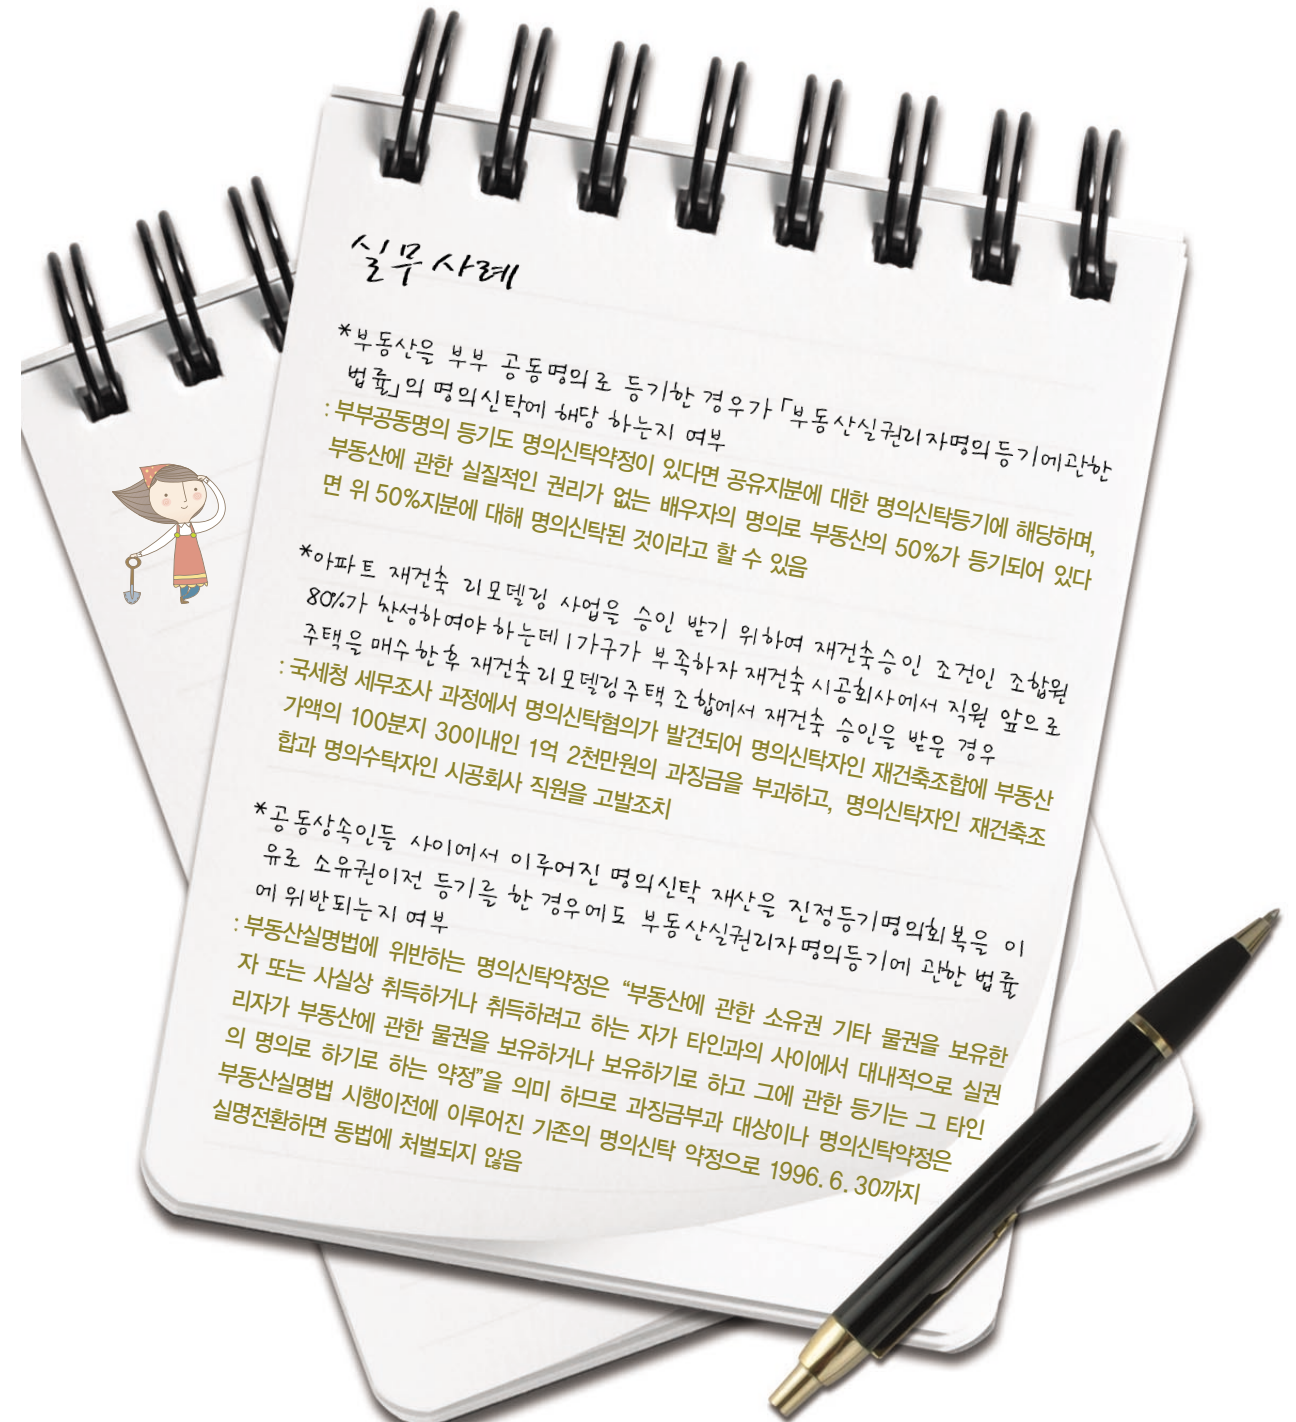 실무 사례
*부동산을 부부 공동명의로 등기한 경우가 「부동산실권리자명의등기에관한
법률」의 명의신탁에 해당 하는지 여부
: 부부공동명의 등기도 명의신탁약정이 있다면 공유지분에 대한 명의신탁등기에 해당하며,
부동산에 관한 실질적인 권리가 없는 배우자의 명의로 부동산의 50%가 등기되어 있다
면 위 50%지분에 대해 명의신탁된 것이라고 할 수 있음
*아파트 재건축 리모델링 사업을 승인 받기 위하여 재건축승인 조건인 조합원
80%가 찬성하여야 하는데 1가구가 부족하자 재건축 시공회사에서 직원 앞으로
주택을 매수한후 재건축리모델링주택 조합에서 재건축 승인을 받은 경우
: 국세청 세무조사 과정에서 명의신탁혐의가 발견되어 명의신탁자인 재건축조합에 부동산
가액의 100분지 30이내인 1억 2천만원의 과징금을 부과하고, 명의신탁자인 재건축조
합과 명의수탁자인 시공회사 직원을 고발조치
*공동상속인들 사이에서 이루어진 명의신탁 재산을 진정등기명의회복을 이
유로 소유권이전 등기를 한 경우에도 부동산실권리자명의등기에 관한 법률
에 위반되는지 여부
: 부동산실명법에 위반하는 명의신탁약정은 “부동산에 관한 소유권 기타 물권을 보유한
자 또는 사실상 취득하거나 취득하려고 하는 자가 타인과의 사이에서 대내적으로 실권
리자가 부동산에 관한 물권을 보유하거나 보유하기로 하고 그에 관한 등기는 그 타인
의 명의로 하기로 하는 약정”을 의미 하므로 과징금부과 대상이나 명의신탁약정은
부동산실명법 시행이전에 이루어진 기존의 명의신탁 약정으로 1996. 6. 30까지
실명전환하면 동법에 처벌되지 않음